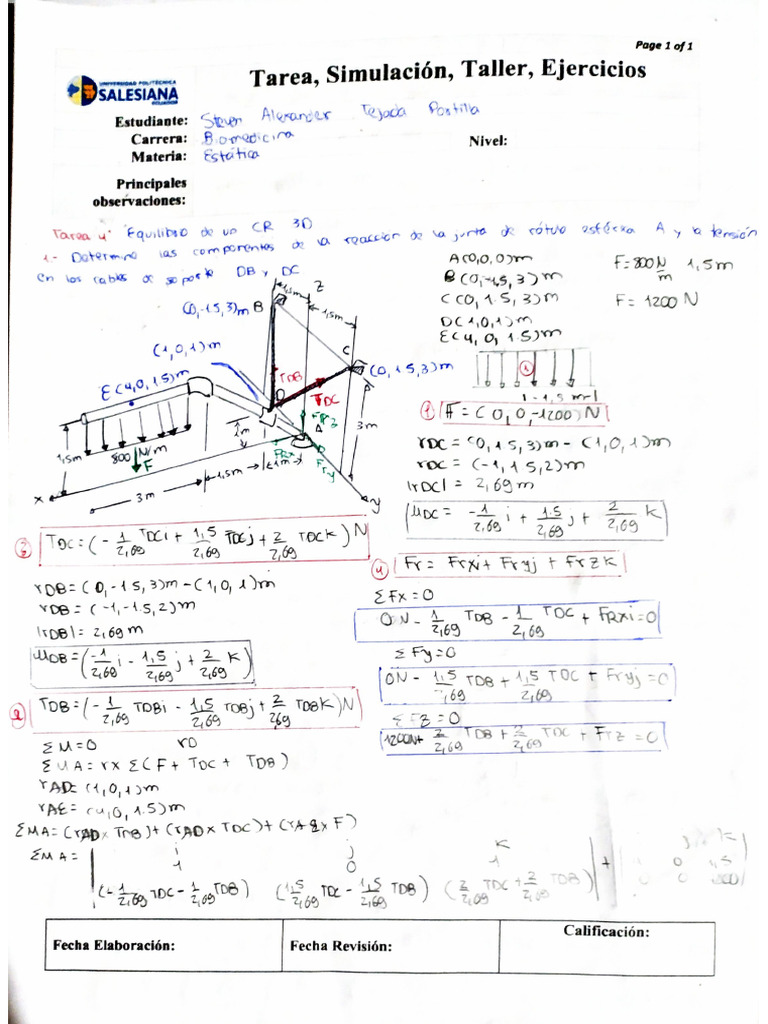 Page 1 of 1
Tarea, Simulación, Taller, Ejercicios
UNIVERSIDAD POLITÉCNICA
SALESIANA
ECUADOR
Estudiante: Steven Alexander Tejada Portilla
Carrera: Biomedicina
Nivel:
Materia: Estática
Principales
observaciones:
Tarea 4: Equilibrio de un CR 3D
1.- Determine las componentes de la reacción de la junta de rótula esférica A y la tensión
en los cables de soporte DB y DC
A(0,0,0)m
B(0,-1.5,3)m
C(0,1.5,3)m
D(1,0,1)m
E(4,0,1.5)m
F=800 N/m 1,5m
F=1200N
(0,-1.5,3)m B
Z
1,5m
1,5m
(1,0,1)m
C
(0,1.5,3)m
E(4,0,1.5)m
TDB
D
TDC
A
FRx
Fry
1m
3m
1,5m
800 N/m
F
1,5m
1m
3m
x
y
① F=(0,0,-1200)N
rDC=(0,1.5,3)m-(1,0,1)m
rDC=(-1,1.5,2)m
|rDC|=2,69m
μDC=-1/2,69 i+1.5/2,69 j+2/2,69 K
③ TDC=(-1/2,69 TDCi+1,5/2,69 TDCj+2/2,69 TDCK)N
rDB=(0,-1.5,3)m-(1,0,1)m
rDB=(-1,-1.5,2)m
|rDB|=2,69m
μDB=(-1/2,69 i-1,5/2,69 j+2/2,69 K)
② TDB=(-1/2,69 TDBi-1,5/2,69 TDBj+2/269 TDBK)N
④ Fr=Frxi+Fryj+FrzK
ΣFx=0
0N-1/2,69 TDB-1/2,69 TDC+FRxi=0
ΣFy=0
0N-1,5/2,69 TDB+1,5/2,69 TDC+Fryj=0
ΣFz=0
1200N+2/2,69 TDB+2/2,69 TDC+FrZ=0
ΣM=0 rD
ΣMA=rxΣ(F+TDC+TDB)
rAD=(1,0,1)m
rAE=(4,0,1.5)m
ΣMA=(rADxTDB)+(rADxTDC)+(rAExF)
ΣMA=
i j K
1 0 1
(-1/2,69 TDC-1/2,69 TDB) (1,5/2,69 TDC-1,5/2,69 TDB) (2/2,69 TDC+2/2,69 TDB)
+
0 1,5
0 0
Fecha Elaboración:
Fecha Revisión:
Calificación: